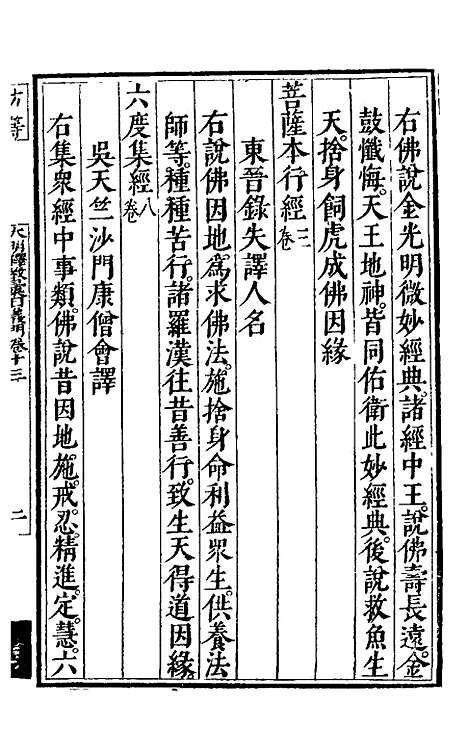 右佛說金光明微妙經典。諸經中王。說佛壽長遠。金
鼓懺悔。天王地神。皆同佑衛此妙經典。後說救魚生
天。捨身飼虎成佛因緣
菩薩本行經三卷
東晉錄失譯人名
右說佛因地。為求佛法。施捨身命利益眾生。供養法
師等。種種苦行。諸羅漢往昔善行。致生天得道因緣。
六度集經八卷
吳天竺沙門康僧會譯
右集眾經中事類。佛說昔因地。施。戒。忍。精進。定。慧。六
方等
卷十三
二